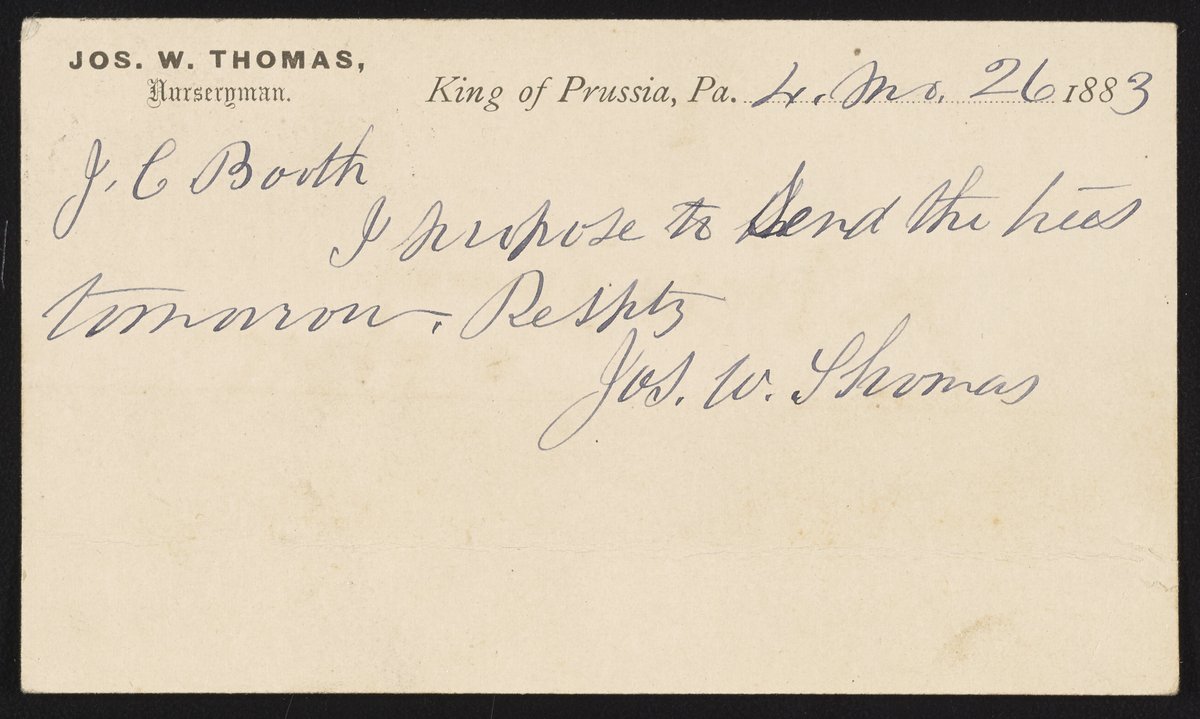 JOS. W. THOMAS,
Nurseryman.
King of Prussia, Pa. 4. Mo. 26 1883
J. C Booth
I propose to send the trees
tomorrow. Resptz
Jos. W. Thomas